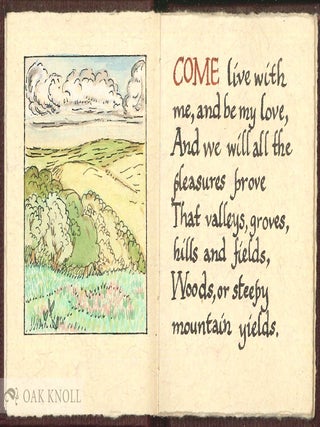 COME live with
me, and be my love,
And we will all the
pleasures prove
That valleys, groves,
hills and fields,
Woods, or steepy
mountain yields.
OAK KNOLL